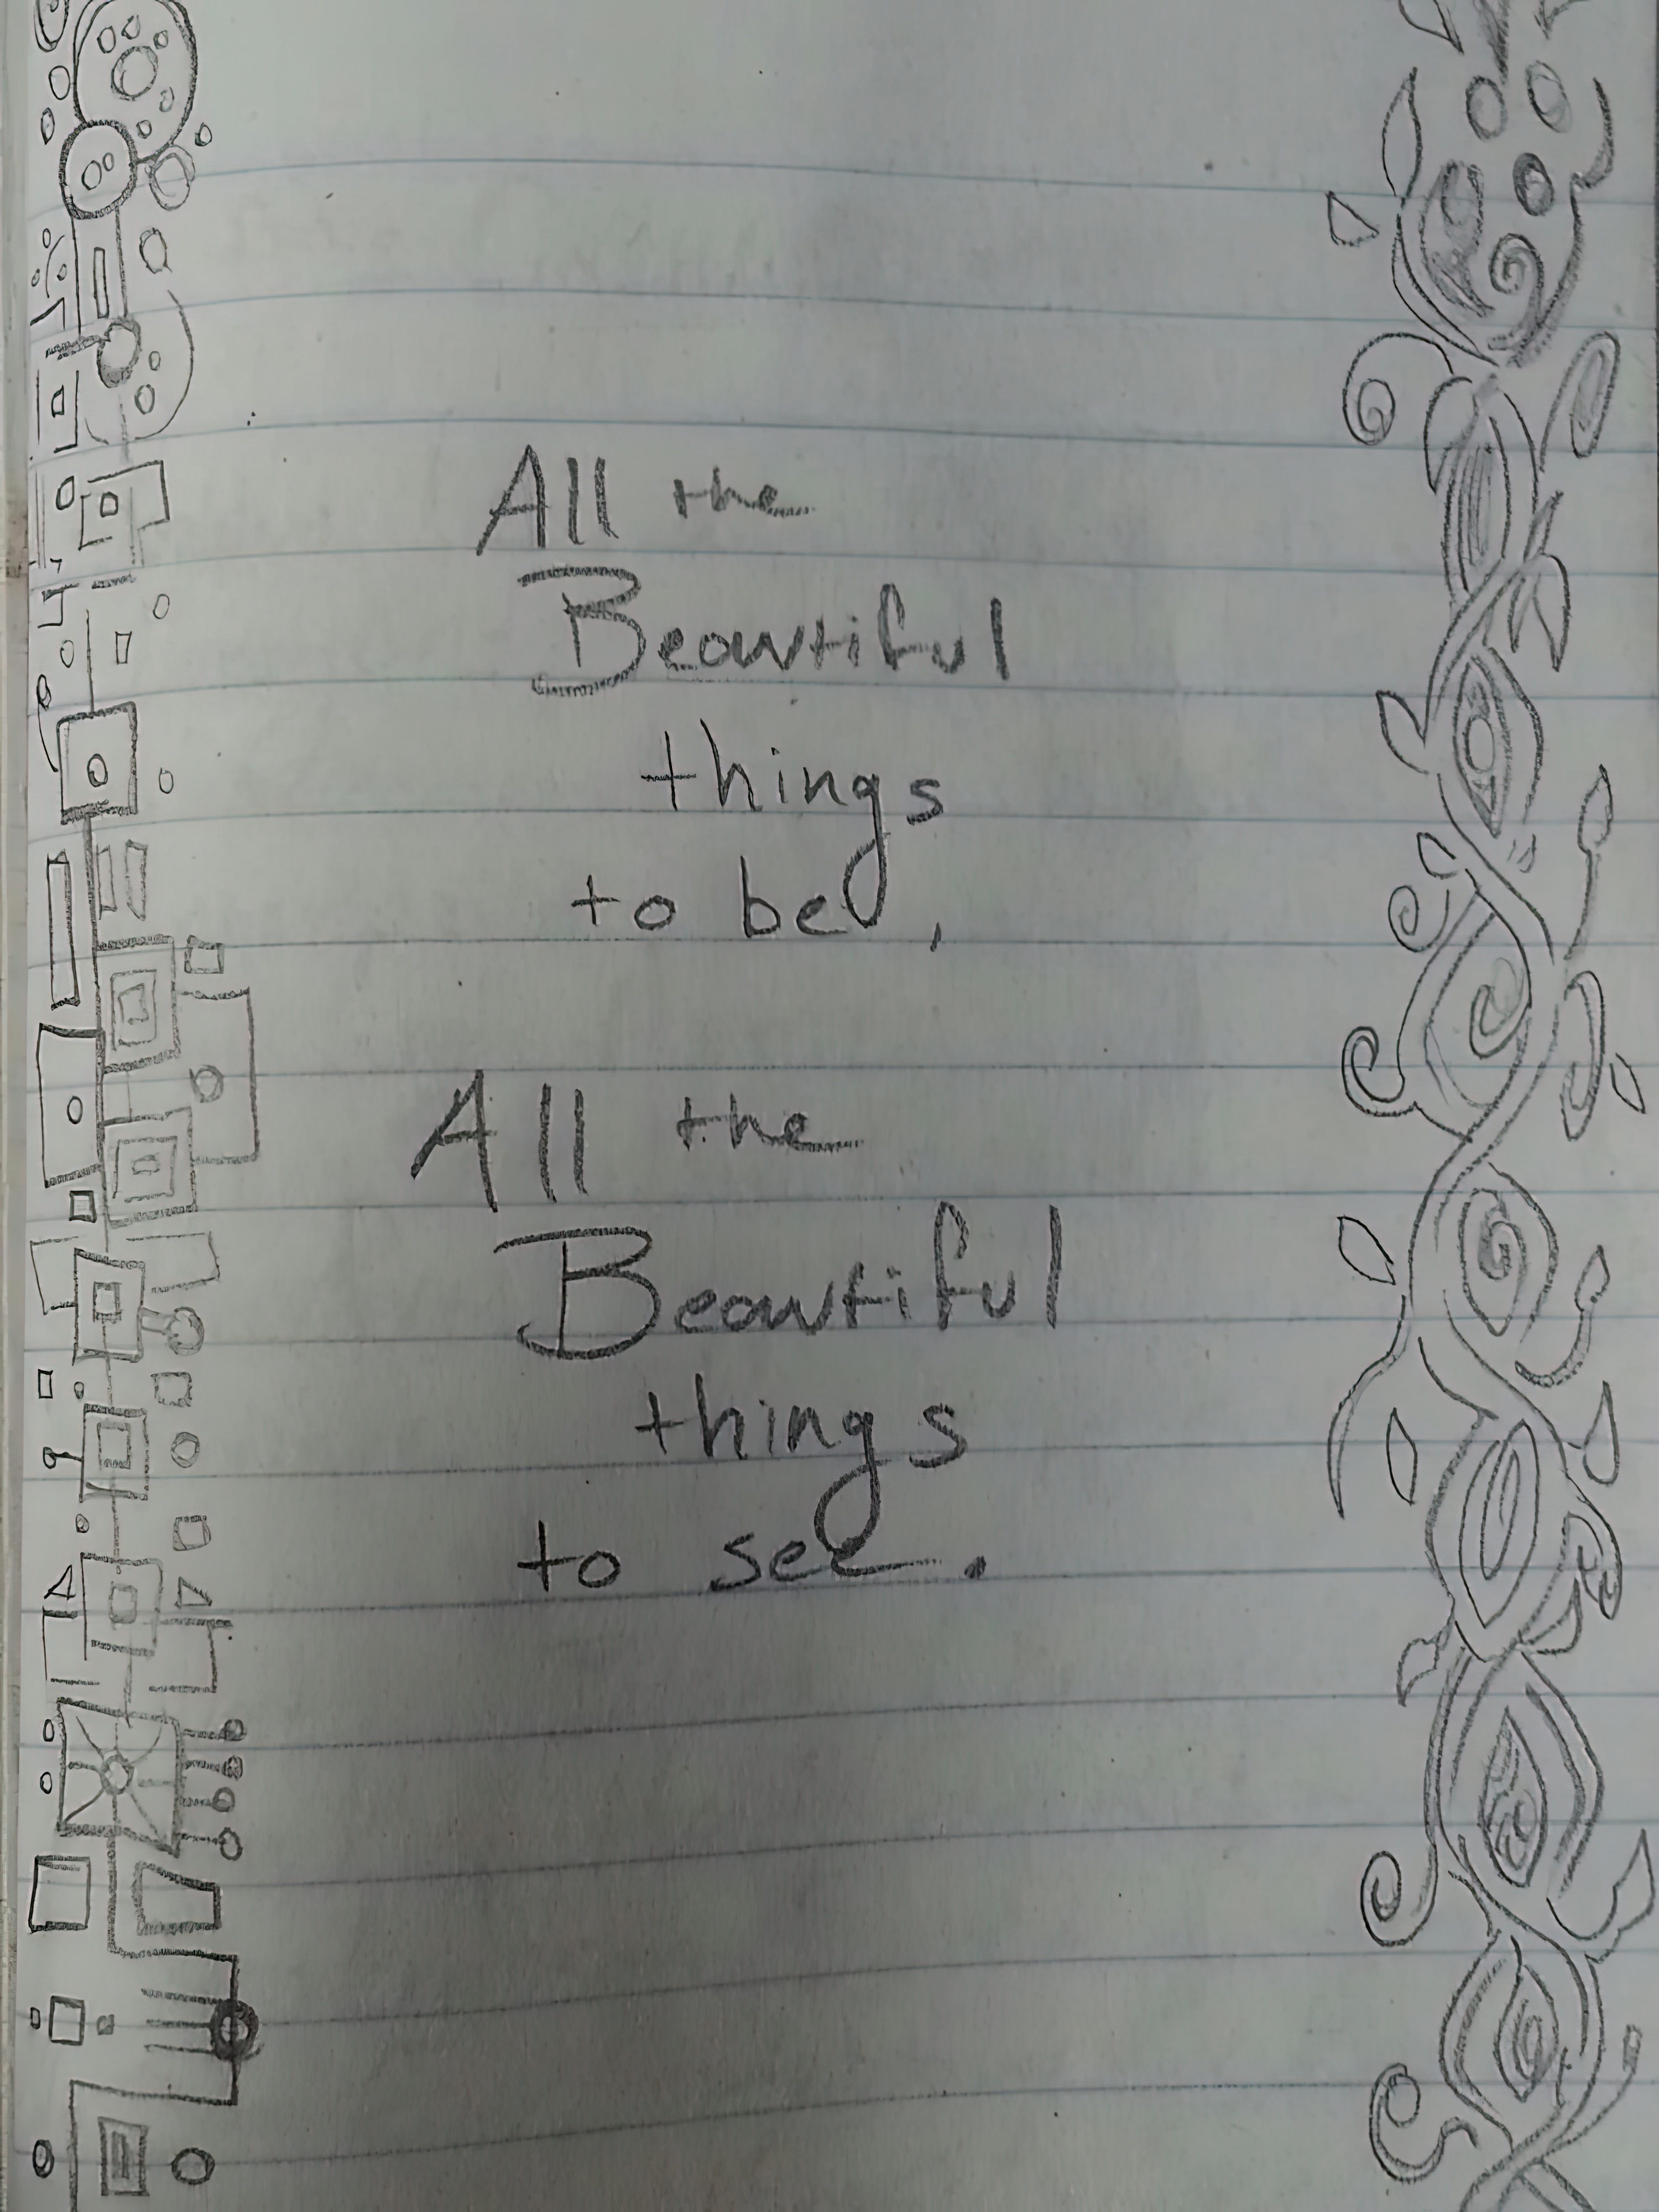 All the
Beautiful
things
to be,
All the
Beautiful
things
to see.